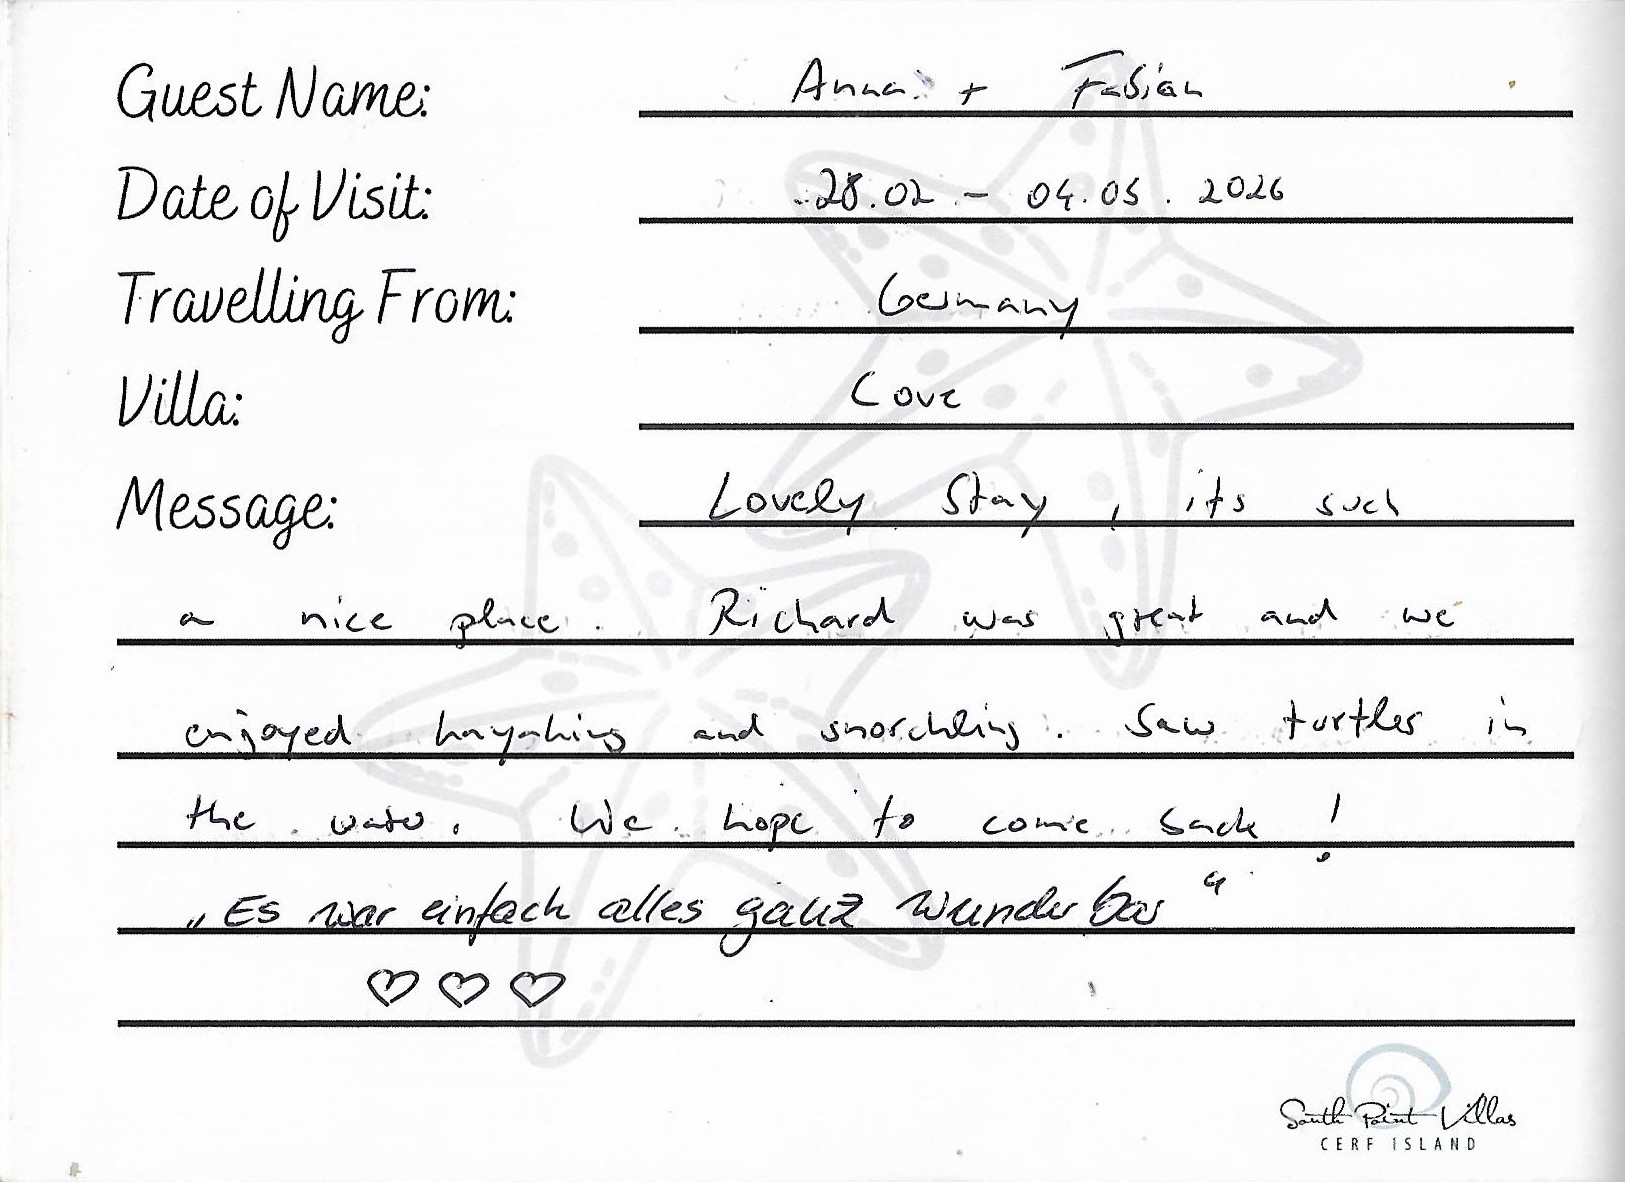 Guest Name: Anna + Fabian
Date of Visit: 28.02 - 04.03. 2026
Travelling From: Germany
Villa: Cove
Message: Lovely Stay, its such
a nice place. Richard was great and we
enjoyed kayaking and snorchling. Saw turtles in
the water. We hope to come back!
„Es war einfach alles ganz wunderbar“
♡♡♡
South Point Villas
CERF ISLAND